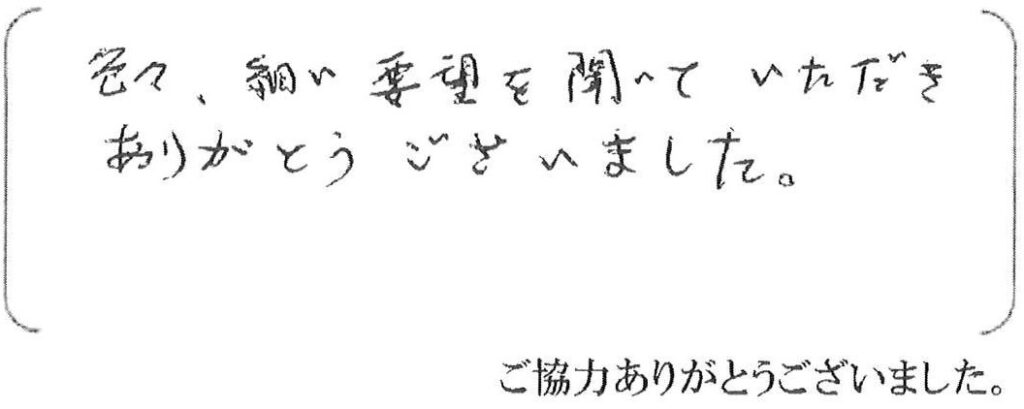 色々、細い要望を聞いていただき
ありがとうございました。
ご協力ありがとうございました。